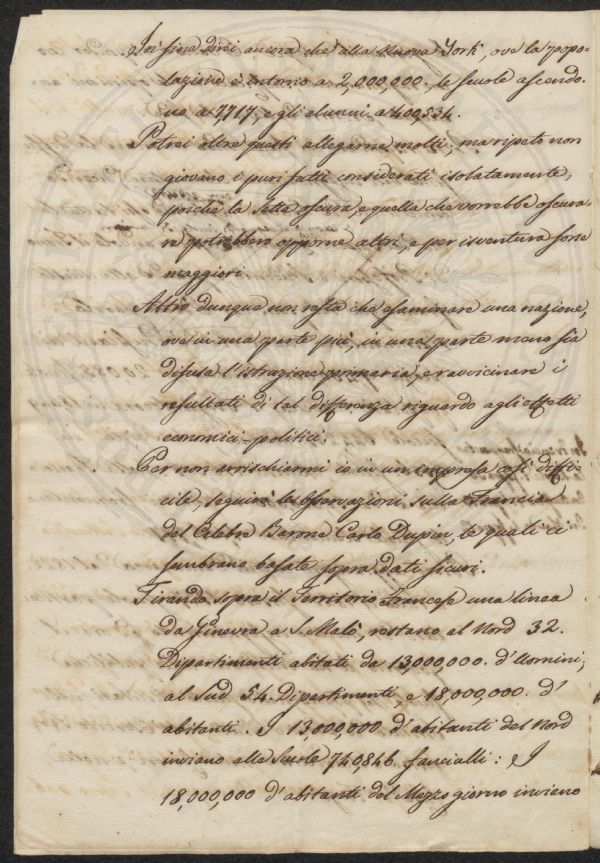 In fine direi ancora che alla Nuova York, ove la popo-
lazione è intorno a 2,000,000., le scuole ascendo-
no a 7717., e gli alunni a 400,534.
Potrei oltre questi allegarne molti, ma ripeto non
giovano i puri fatti considerati isolatamente,
poichè la Setta oscura, e quella che vorrebbe oscura-
re potrebbero opporne altri, e per isventura forse
maggiori.
Altro dunque non resta che esaminare una nazione,
ove in una parte più, in una parte meno sia
difusa l'istruzione primaria, e ravvicinare i
resultati di tal differenza riguardo agli effetti
economici-politici.
Per non arrischiarmi io in un impresa così diffi-
cile, seguirò le Osservazioni sulla Francia
del Celebre Barone Carlo Dupin, le quali ci
sembrano basate sopra dati sicuri.
Tirando sopra il Territorio Francese una linea
da Ginevra a S. Malò, restano al Nord 32.
Dipartimenti abitati da 13,000,000. d'Uomini,
al Sud 54. Dipartimenti, e 18,000,000. d'
abitanti. I 13,000,000 d'abitanti del Nord
inviano alle Scuole 740,846. fancialli: I
18,000,000 d'abitanti del Mezzogiorno inviano